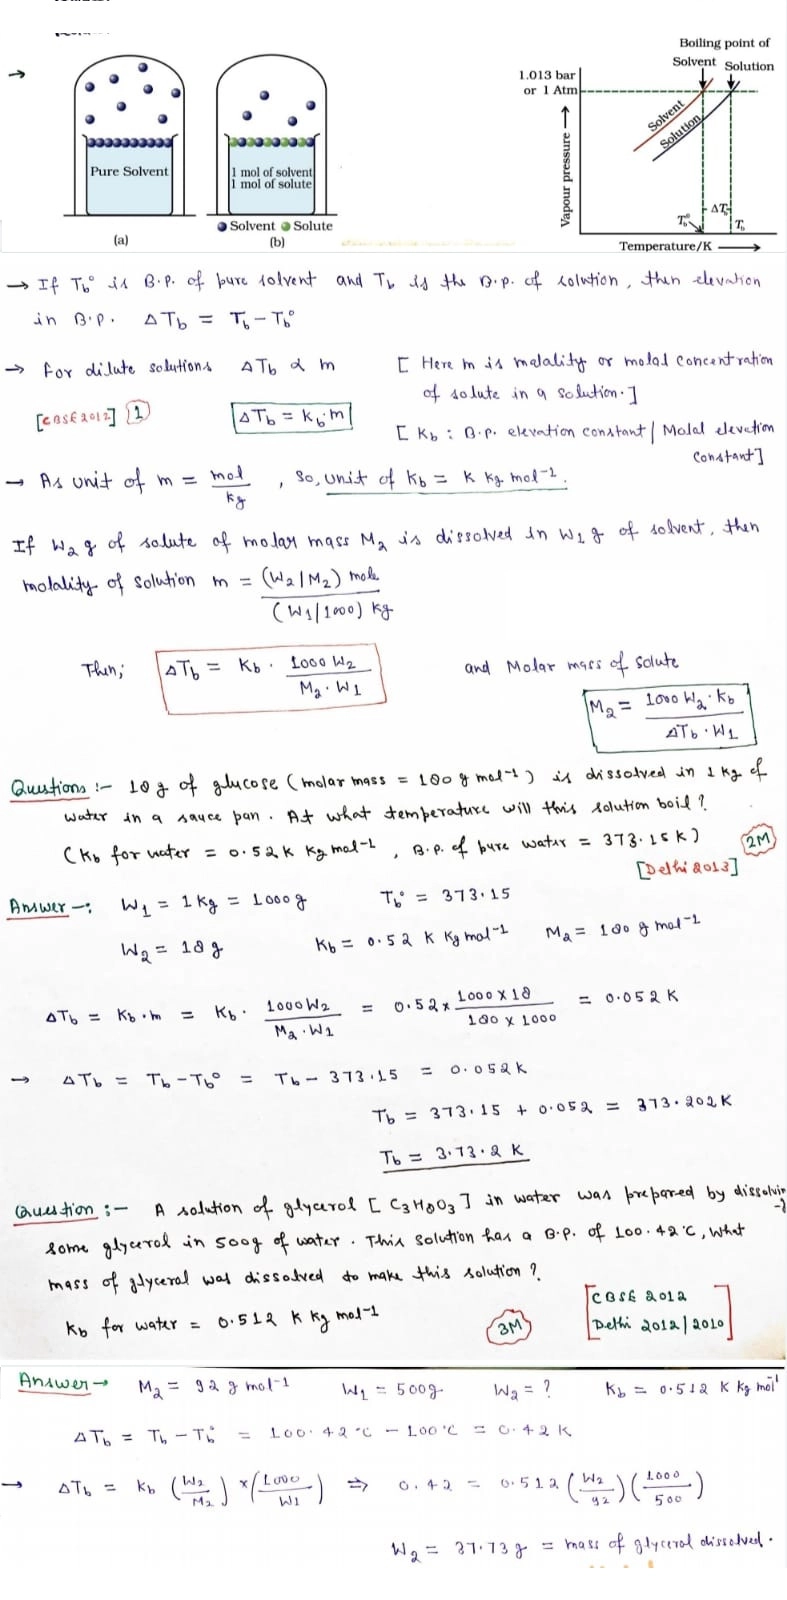 →
Pure Solvent
1 mol of solvent
1 mol of solute
Solvent Solute
(a)
(b)
Boiling point of
Solvent Solution
1.013 bar
or 1 Atm
Vapour pressure →
Solvent
Solution
ΔTb
Tb°
Tb
Temperature/K →
→ If Tb° is B.P. of pure solvent and Tb is the B.P. of solution, then elevation
in B.P. ΔTb = Tb - Tb°
→ for dilute solutions ΔTb α m [ Here m is molality or molal concentration
of solute in a solution.]
[CBSE 2012] 1 ΔTb = kb.m
[ Kb : B.P. elevation constant / Molal elevation
constant]
→ As unit of m = mol/kg , So, unit of Kb = K kg mol⁻¹.
If W2 g of solute of molar mass M2 is dissolved in W1 g of solvent, then
molality of solution m = (W2/M2) mole / (W1/1000) kg
Then; ΔTb = Kb . 1000 W2 / M2 . W1 and Molar mass of solute
M2 = 1000 W2 . Kb / ΔTb . W1
Questions :- 18 g of glucose (molar mass = 180 g mol⁻¹) is dissolved in 1 kg of
water in a sauce pan. At what temperature will this solution boil ?
(Kb for water = 0.52 K Kg mol⁻¹, B.P. of pure water = 373.15 K) 2M
[Delhi 2013]
Answer -: W1 = 1 Kg = 1000 g Tb° = 373.15
W2 = 18 g Kb = 0.52 K Kg mol⁻¹ M2 = 180 g mol⁻¹
ΔTb = Kb . m = Kb . 1000 W2 / M2 . W1 = 0.52 x 1000 X 18 / 180 x 1000 = 0.052 K
→ ΔTb = Tb - Tb° = Tb - 373.15 = 0.052 K
Tb = 373.15 + 0.052 = 373.202 K
Tb = 3.73.2 K
Question :- A solution of glycerol [ C3H8O3 ] in water was prepared by dissolvin
-g
some glycerol in 500g of water. This solution has a B.P. of 100.42°C, what
mass of glycerol was dissolved to make this solution ?
Kb for water = 0.512 K Kg mol⁻¹ 3M
[CBSE 2012
Delhi 2012/2010]
Answer → M2 = 92 g mol⁻¹ W1 = 500g W2 = ? Kb = 0.512 K Kg mol⁻¹
ΔTb = Tb - Tb° = 100.42°C - 100°C = 0.42 K
→ ΔTb = Kb (W2/M2) x (1000/W1) ⇒ 0.42 = 0.512 (W2/92) (1000/500)
W2 = 37.73 g = mass of glycerol dissolved.